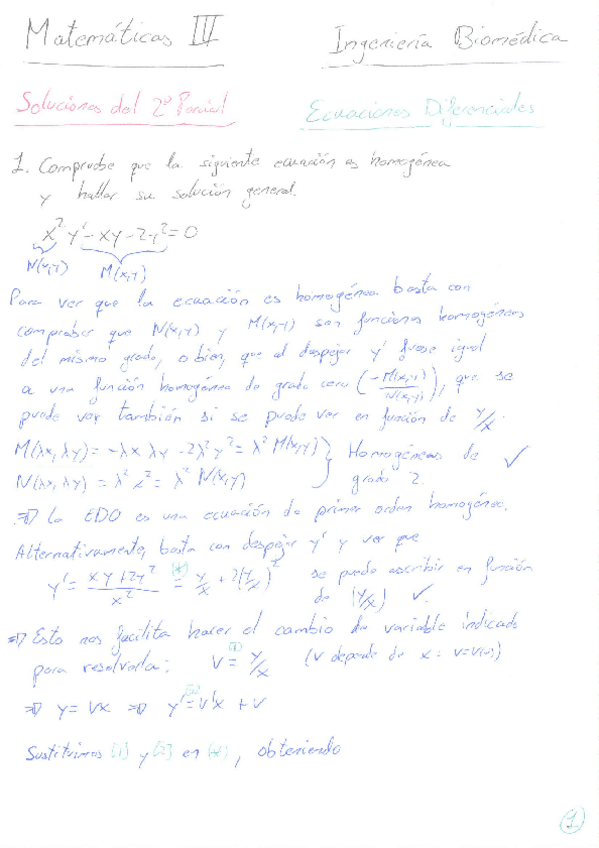 Matemáticas III Ingeniería Biomédica
Soluciones del 2º Parcial Ecuaciones Diferenciales
1. Compruebe que la siguiente ecuación es homogénea
y hallar su solución general.
x² y' - xy - 2y² = 0
N(x,y) M(x,y)
Para ver que la ecuación es homogénea basta con
comprobar que N(x,y) y M(x,y) son funciones homogéneas
del mismo grado, o bien, que al despejar y' fuese igual
a una función homogénea de grado cero (-M(x,y)/N(x,y)), que se
puede ver también si se puede ver en función de y/x.
M(λx, λy) = -λx λy - 2λ²y² = λ² M(x,y)
N(λx, λy) = λ² x² = λ² N(x,y)
} Homogéneas de
grado 2. ✓
⇒ La EDO es una ecuación de primer orden homogénea.
Alternativamente, basta con despejar y' y ver que
y' = (xy + 2y²)/x² (*)= y/x + 2(y/x)² se puede escribir en función
de (y/x) ✓.
⇒ Esto nos facilita hacer el cambio de variable indicado
para resolverla: v (1)= y/x (v depende de x: v = v(x))
⇒ y = vx ⇒ y' (2)= v'x + v
Sustituimos (1) y (2) en (*), obteniendo
1